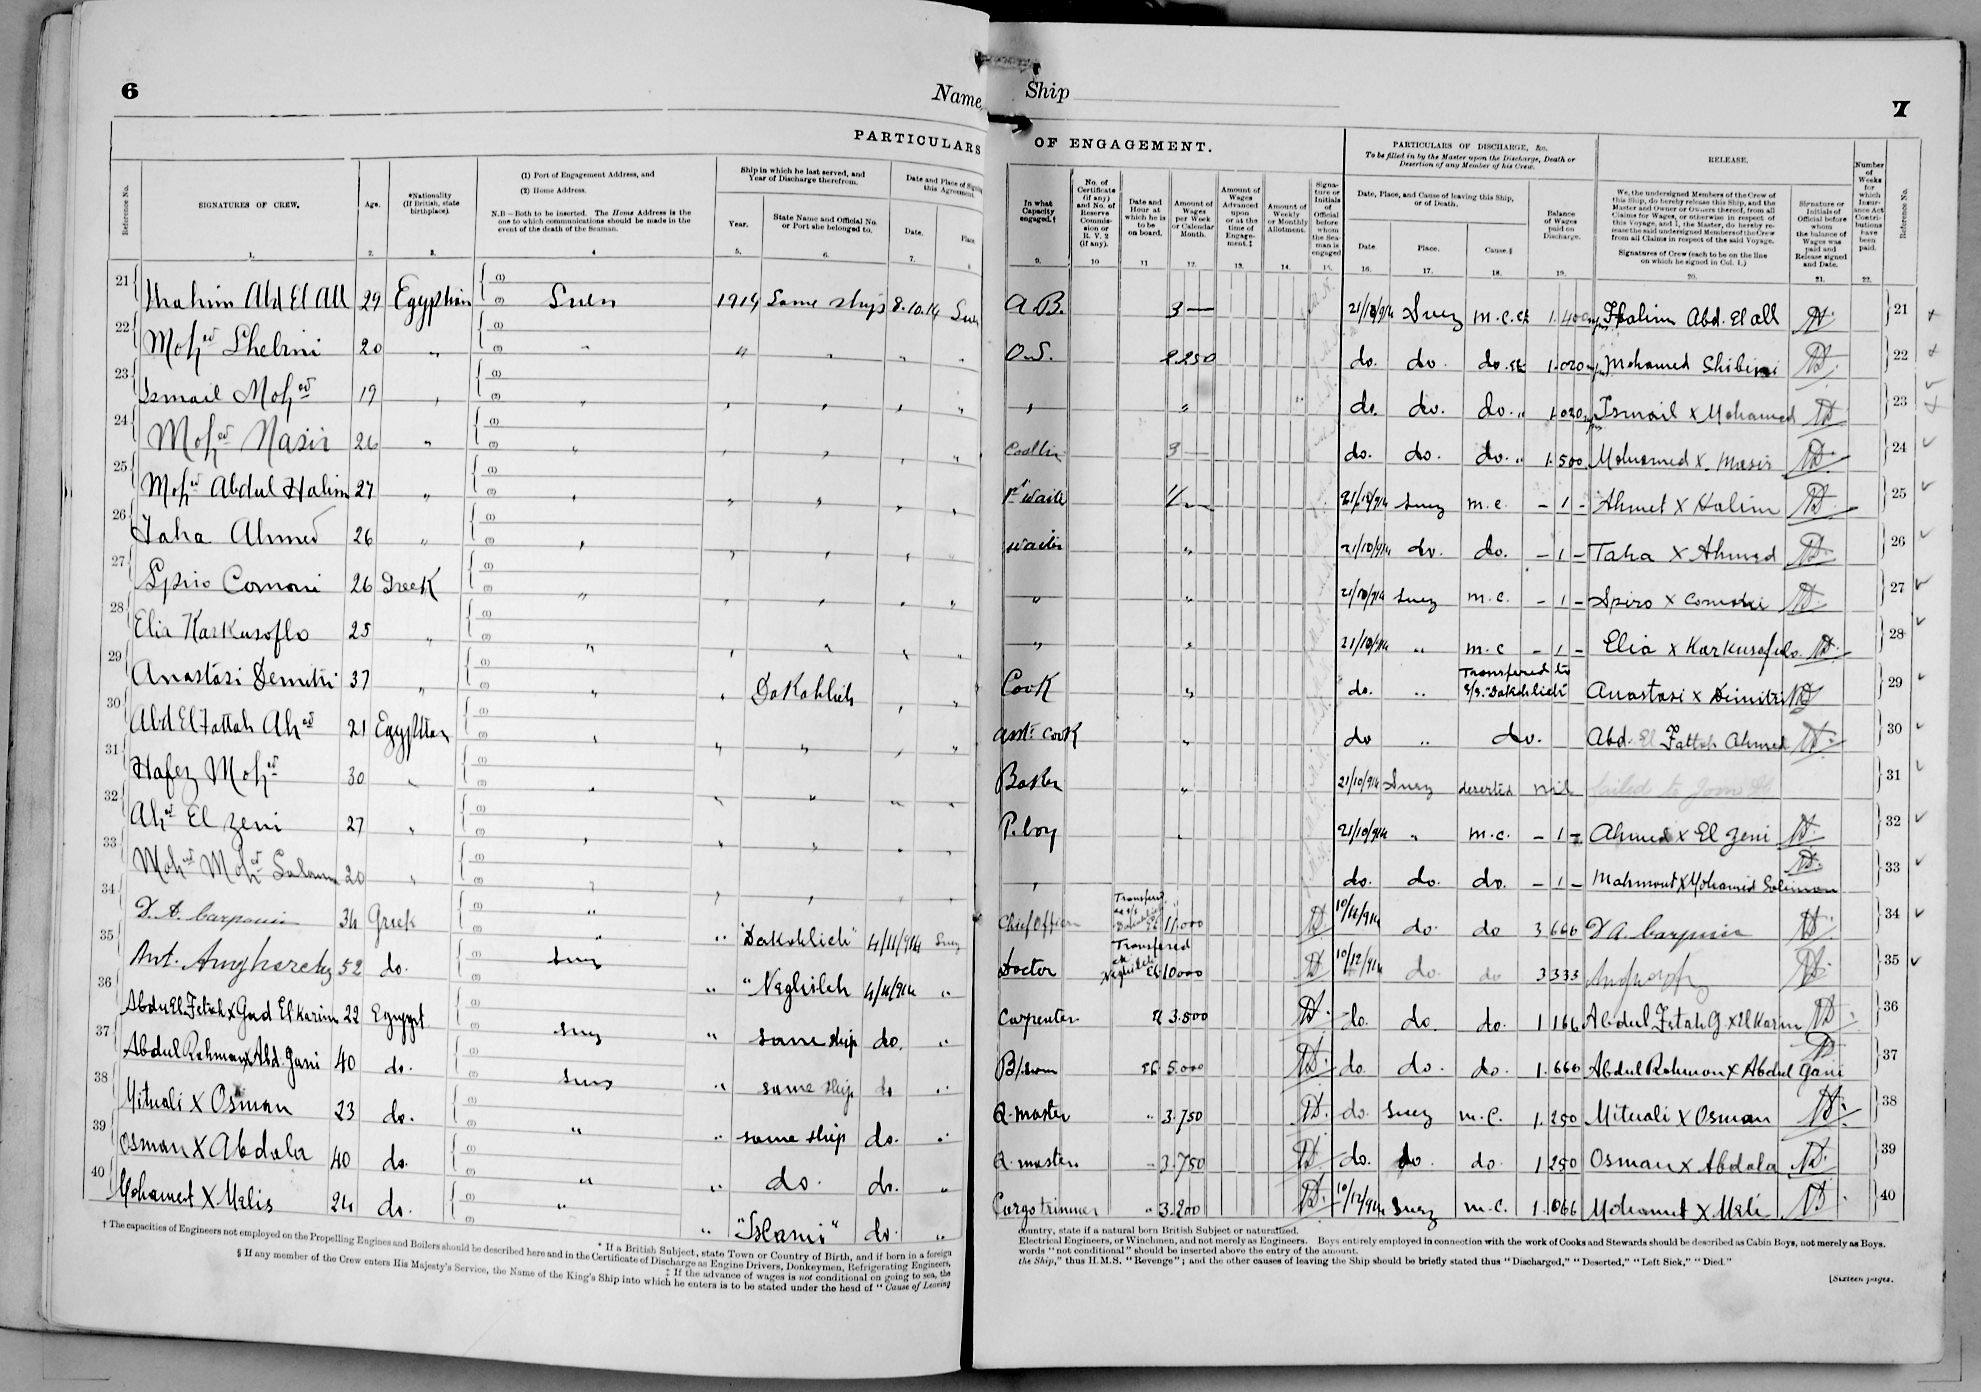 6
Name, Ship
7
PARTICULARS OF ENGAGEMENT.
PARTICULARS OF DISCHARGE, &c.
To be filled in by the Master upon the Discharge, Death or Desertion of any Member of his Crew.
RELEASE.
Reference No.
SIGNATURES OF CREW.
1.
Age.
2.
*Nationality (If British, state birthplace).
3.
(1) Port of Engagement Address, and
(2) Home Address.
N.B—Both to be inserted. The Home Address is the one to which communications should be made in the event of the death of the Seaman.
4
Ship in which he last served, and Year of Discharge therefrom.
Year.
5.
State Name and Official No. or Port she belonged to.
6.
Date and Place of Signing this Agreement
Date.
7.
Place.
8
In what Capacity engaged.†
9.
No. of Certificate (if any) and No. of Reserve Commission or R. V. 2 (if any).
10
Date and Hour at which he is to be on board.
11
Amount of Wages per Week or Calendar Month.
12.
Amount of Wages Advanced upon or at the time of Engagement.‡
13.
Amount of Weekly or Monthly Allotment.
14.
Signature or Initials of Official before whom the Seaman is engaged
15.
Date, Place, and Cause of leaving this Ship, or of Death.
Date
16.
Place.
17.
Cause.§
18.
Balance of Wages paid on Discharge.
19.
We, the undersigned Members of the Crew of this Ship, do hereby release this Ship, and the Master and Owner or Owners thereof, from all Claims for Wages, or otherwise in respect of this Voyage, and I, the Master, do hereby release the said undersigned Members of the Crew from all Claims in respect of the said Voyage.
Signatures of Crew (each to be on the line on which he signed in Col. 1.)
20.
Signature or Initials of Official before whom the balance of Wages was paid and Release signed and Date.
21.
Number of Weeks for which Insurance Act Contributions have been paid.
22.
Reference No.
21 Ibrahim Abd El All 29 Egyptian (1) (2) Suez 1914 Same ship 8.10.14 Suez A.B. 3— 21/10/914 Suez m.c. 1.400 Ibrahim Abd. El all 21
22 Mohed Shebini 20 " (1) (2) " " " " " O.S. 2.250 do. do. do. 1.020 Mohamed Shibini 22
23 Ismail Mohed 19 " (1) (2) " " " " " " " do. do. do. " 1.020 Ismail x Mohamed 23
24 Mohed Nasir 26 " (1) (2) " " " " " 3— do. do. do. " 1.500 Mohamed x Nasir 24
25 Mohed Abdul Halim 27 " (1) (2) " " " " " 21/10/914 Suez m.c. – 1 – Ahmet x Halim 25
26 Taha Ahmed 26 " (1) (2) " " " " " waiter " 21/10/914 do. do. – 1 – Taha x Ahmed 26
27 Spiro Comoni 26 Greek (1) (2) " " " " " " " 21/10/914 Suez m.c. – 1 – Spiro x 27
28 Elia Karkusoflo 25 " (1) (2) " " " " " " " 21/10/914 " m.c – 1 – Elia x 28
29 Anastasi Demitri 37 " (1) (2) " " Dakahlieh " " Cook " do. " Transfered to S/S. "Dakahlieh" Anastasi x Dimitri 29
30 Abd El Fattah Ahed 21 Egyptian (1) (2) " " " " " Asst. Cook " do " do. Abd. El Fattah Ahmed 30
31 Hafez Mohed 30 " (1) (2) " " " " " Baker " 21/10/914 Suez deserted nil failed to join 31
32 Ahed El Zeni 27 " (1) (2) " " " " " P. boy " 21/10/914 " m.c. – 1 – Ahmed x El Zeni 32
33 Mohed Mohed 20 " (1) (2) " " " " " " do. do. do. – 1 – Mahmout x Mohamed Soliman 33
34 34 Greek (1) (2) " " "Dakahlieh" 4/11/914 Suez Chief Officer Transfered 11.000 10/12/914 do. do 3 666 34
35 Ant. 52 do. (1) (2) Suez " "Neghileh 4/11/914 " Doctor Transfered Neghileh 10.000 10/12/914 do. do 3 333 35
36 Abdu El Fetah x Gad El Karim 22 Egypt (1) (2) Suez " same ship do. " Carpenter 3.500 do. do. do. 1 166 Abdul Fetah G. x El Karim 36
37 Abdul Rahman x Abd. Gani 40 do. (1) (2) Suez " same ship do " 5.000 do. do. do. 1.660 Abdul Rahman x Abdul Gani 37
38 Mituali x Osman 23 do. (1) (2) " " same ship do. " Q. master " 3.750 do. Suez m.c. 1.250 Mituali x Osman 38
39 Osman x Abdala 40 do. (1) (2) " " do. do. " Q. master " 3.750 do. do. do. 1 250 Osman x Abdala 39
40 Mohamet x Melis 24 do. (1) (2) " " do. " Cargo trimmer " 3.200 10/12/914 Suez m.c. 1.066 Mohamet x Meli 40
* If a British Subject, state Town or Country of Birth, and if born in a foreign country, state if a natural born British Subject or naturalized.
† The capacities of Engineers not employed on the Propelling Engines and Boilers should be described here and in the Certificate of Discharge as Engine Drivers, Donkeymen, Refrigerating Engineers, Electrical Engineers, or Winchmen, and not merely as Engineers. Boys entirely employed in connection with the work of Cooks and Stewards should be described as Cabin Boys, not merely as Boys.
‡ If the advance of wages is not conditional on going to sea, the words "not conditional" should be inserted above the entry of the amount.
§ If any member of the Crew enters His Majesty's Service, the Name of the King's Ship into which he enters is to be stated under the head of "Cause of Leaving the Ship," thus H.M.S. "Revenge"; and the other causes of leaving the Ship should be briefly stated thus "Discharged," "Deserted," "Left Sick," "Died."
[Sixteen pages.